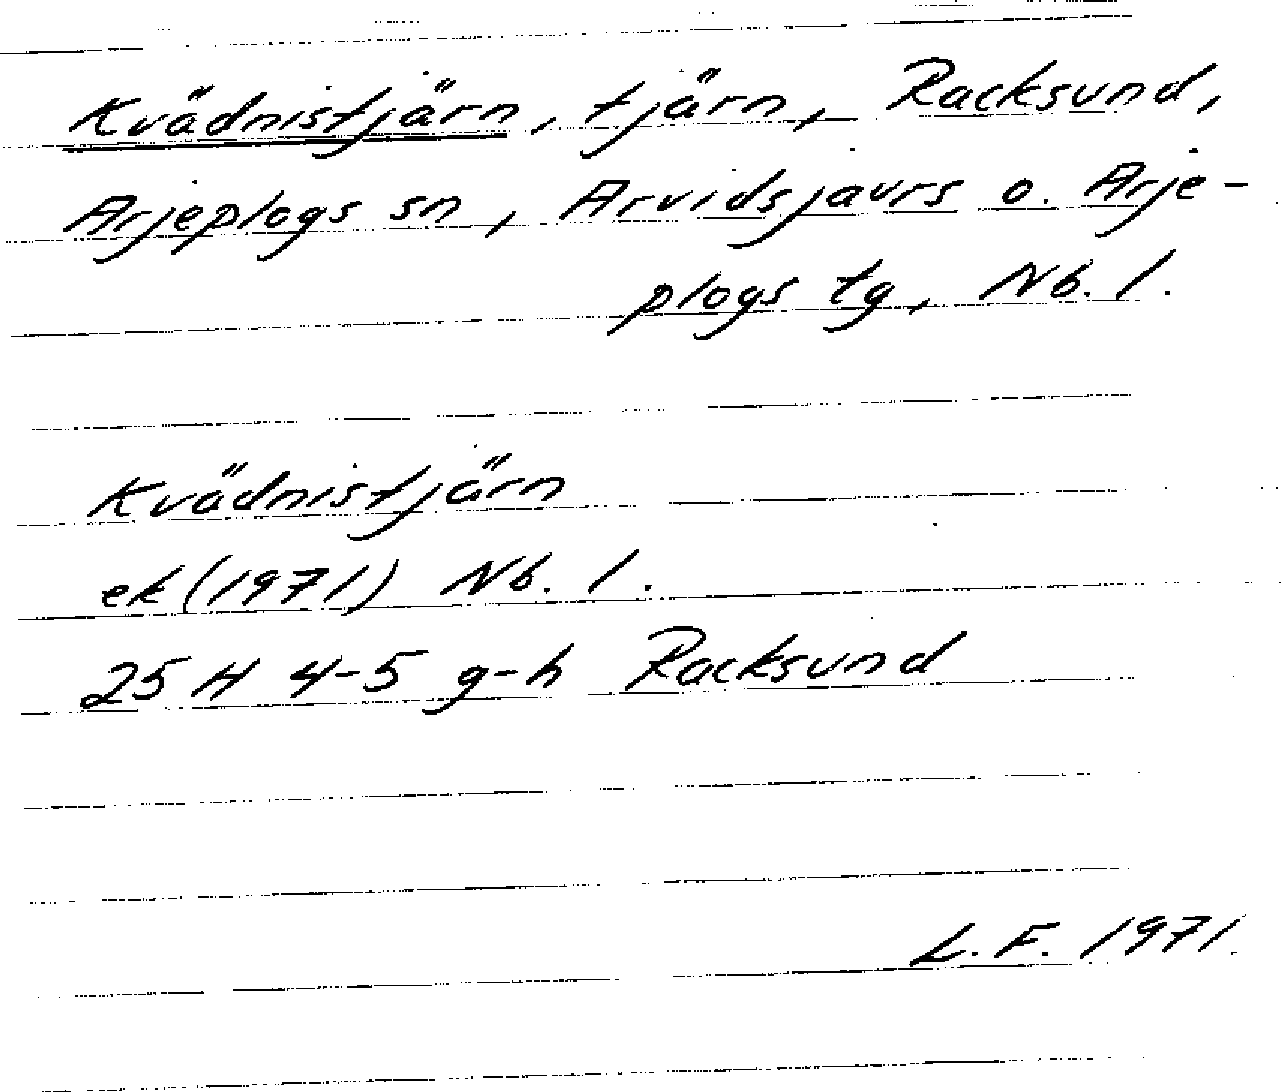 Kvädnistjärn, tjärn, Racksund,
Arjeplogs sn, Arvidsjaurs o. Arje-
plogs tg, Nb. l.
Kvädnistjärn
ek (1971) Nb. l.
25 H 4-5 g-h Racksund
L. F. 1971.